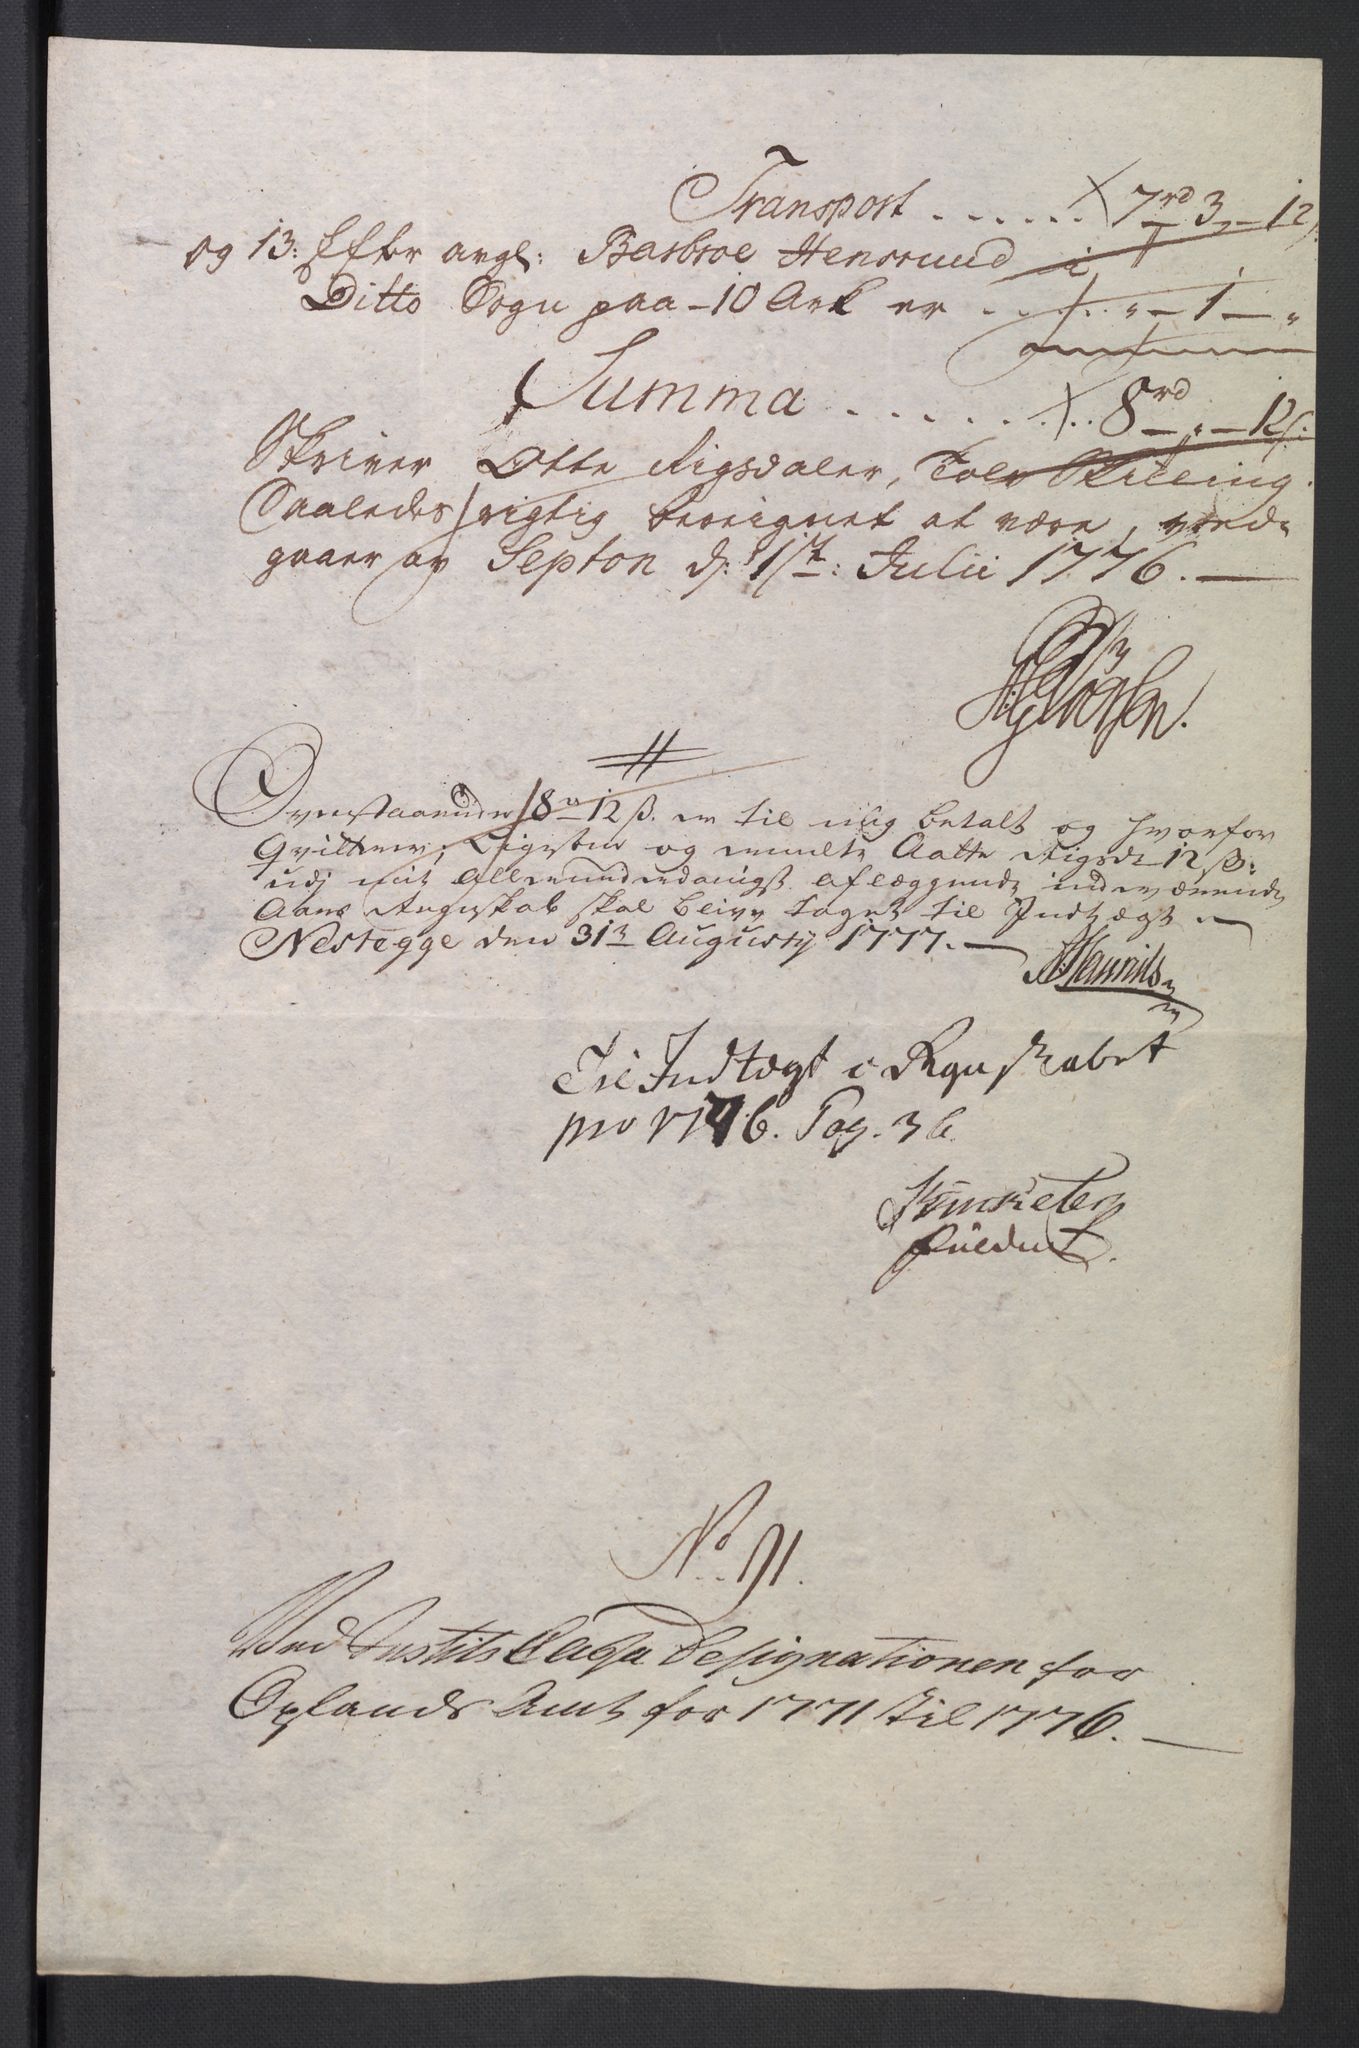 Transport . . . . . . 7rd 3 „ - 12 s:
og 13: Efter avgl: Barbroe Henсrud i
Ditto Sogn paa - 10 Ark er . . . . „ - 1 - „
Summa . . . . . . . . 8rd - „ - 12 s:
Skriver Otte Rigsdaler, Tolv Skilling.
Saaledes rigtig beregnet at være, ved-
gaaer av Septon d: 1ste: Julii 1776. —
Ovenstaaende 8 rd 12 ß. er til mig betalt og hvorfor
Qvitterer, Ligesom og Aatte Rigsdr 12 ß:
udj mit allerunderdanigst aflæggende indeværende
Aars Regnskab skal blive taget til Indtægt —
Nestegge den 31te Augusty 1777. —
Til Indtægt i Regnskabet
pro 1776. Pag. 36.
No 71.
Ved Justits Cassa Designationen for
Oplands Amt for 1771 til 1776. —